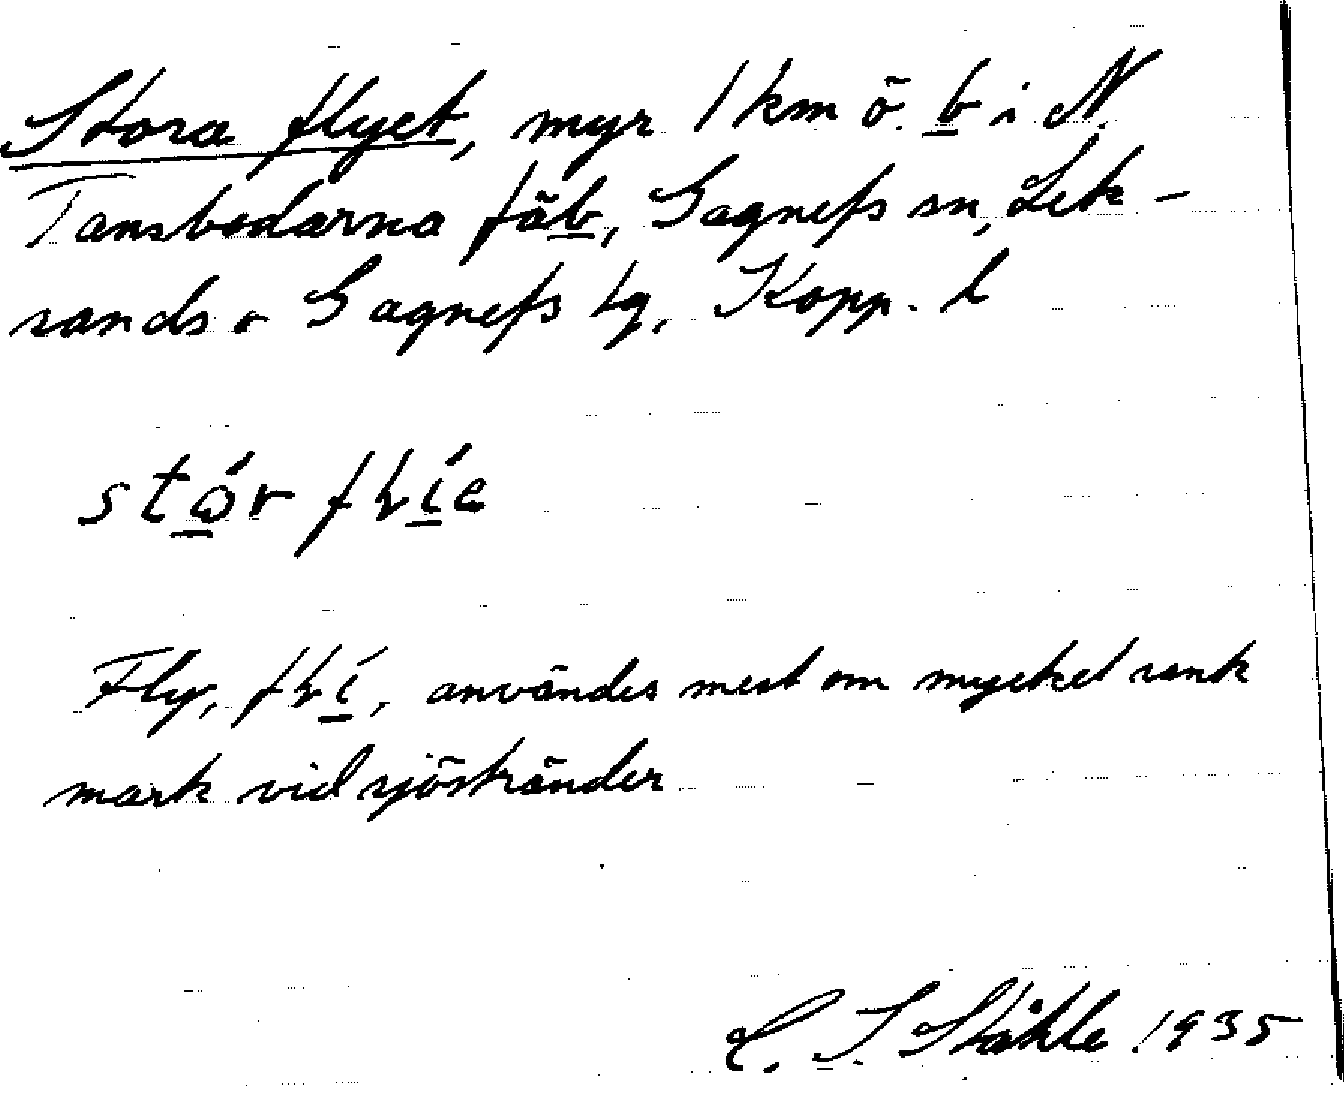 Stora flyet, myr 1 km ö. b i N.
Tansbodarna fäb, Gagnefs sn, Lek-
sands o Gagnefs tg, Kopp. l
Fly, användes mest om mycket sank
mark vid sjöstränder
C. I. Ståhle 1935